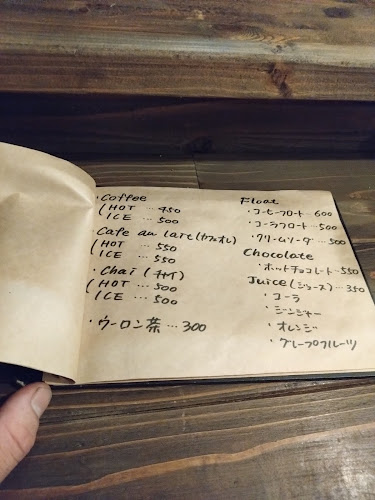 ・Coffee
HOT … 450
ICE … 500
・Cafe au lait (カフェオレ)
HOT … 550
ICE … 550
・Chai (チャイ)
HOT … 500
ICE … 500
・ウーロン茶 … 300
Float
・コーヒーフロート … 600
・コーラフロート … 500
・クリームソーダ … 500
Chocolate
・ホットチョコレート … 550
Juice (ジュース) … 350
・コーラ
・ジンジャー
・オレンジ
・グレープフルーツ